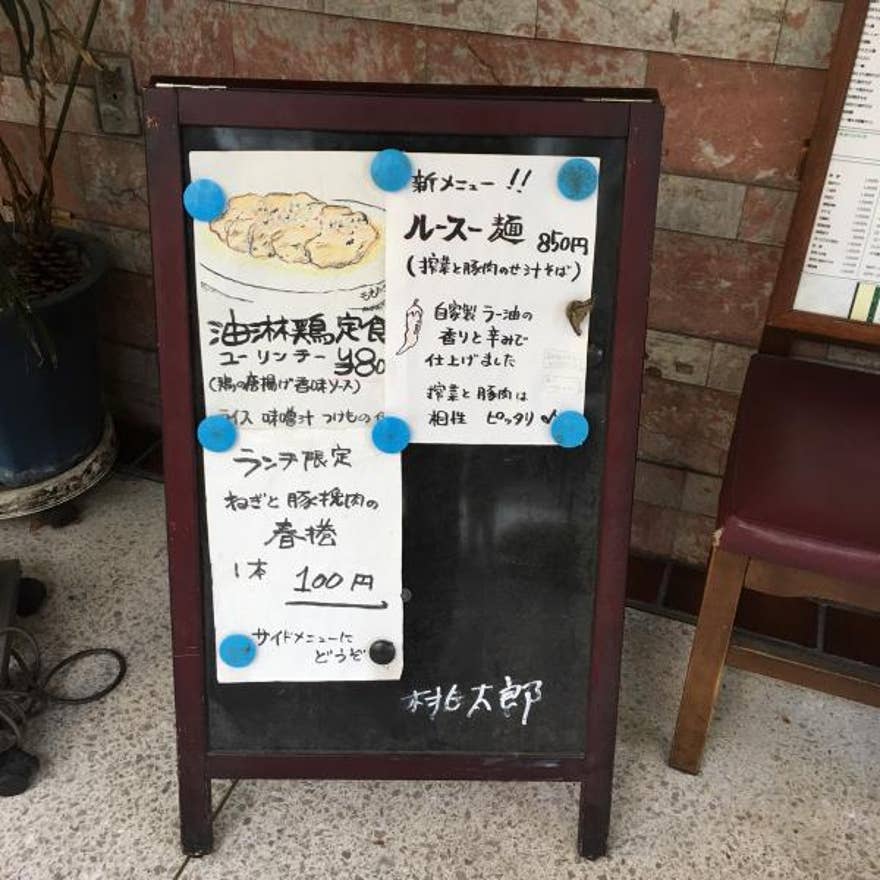 油淋鶏定食
ユーリンチー ¥80
(鶏の唐揚げ香味ソース)
ライス 味噌汁 つけもの
新メニュー!!
ルースー麺 850円
(搾菜と豚肉のせ汁そば)
自家製 ラー油の
香りと辛みで
仕上げました
搾菜と豚肉は
相性 ピッタリ
ランチ限定
ねぎと豚挽肉の
春捲
1本 100円
サイドメニューに
どうぞ
桃太郎